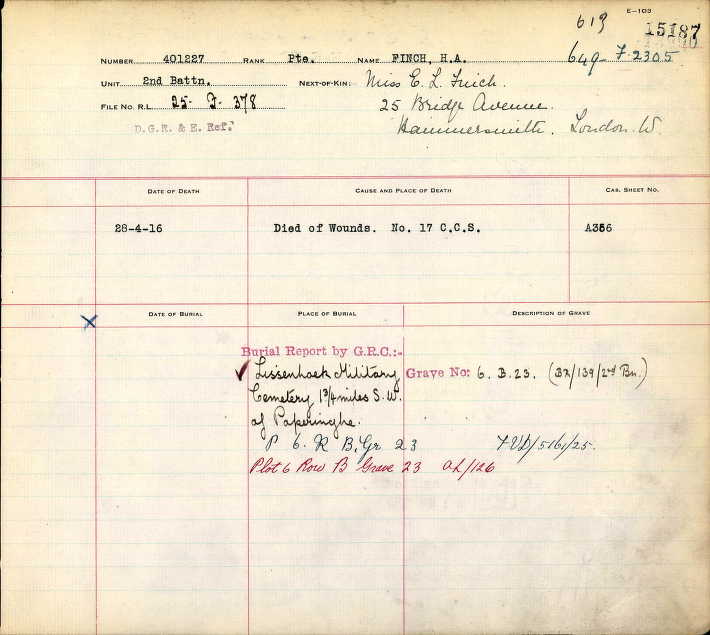 E-103
619 15187
NUMBER 401227 RANK Pte. NAME FINCH, H.A. 649- F-2305
UNIT 2nd Battn. NEXT-OF-KIN: Miss E. L. Finch.
FILE NO. R.L. 25- F- 378 25 Bridge Avenue.
D.G.R. & E. Ref. Hammersmith. London. W.
DATE OF DEATH CAUSE AND PLACE OF DEATH CAS. SHEET NO.
28-4-16 Died of Wounds. No. 17 C.C.S. A386
DATE OF BURIAL PLACE OF BURIAL DESCRIPTION OF GRAVE
Burial Report by G.R.C.:-
Lissenhoek Military Grave No: 6. B. 23. (BX/139/2nd Bn.)
Cemetery 1 3/4 miles S.W.
of Poperinghe.
P 6. R B. Gr 23
Plot 6 Row B Grave 23